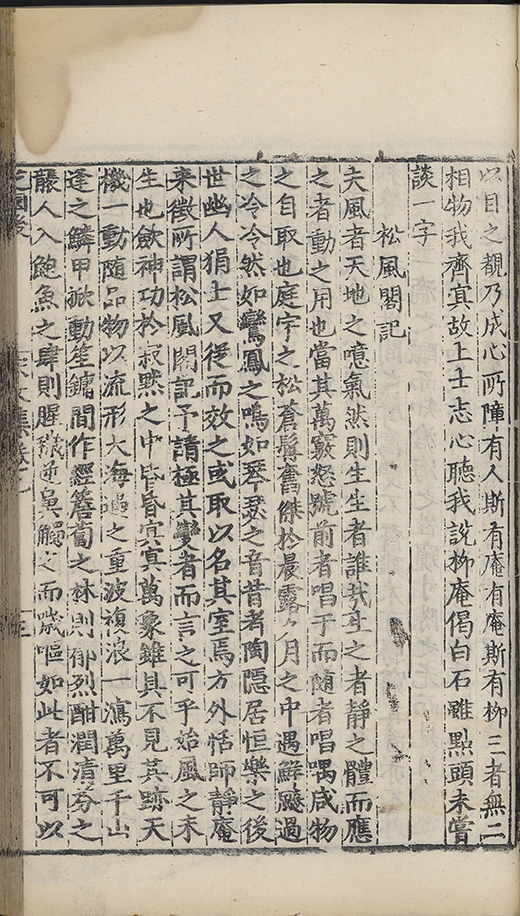 以目之覩乃成心所障有人斯有庵有庵斯有柳三者無二
相物我齊冥故上士志心聽我說柳庵偈白石雖點頭未嘗
談一字
松風閣記
夫風者天地之噫氣然則生生者誰㢤生之者靜之體而應
之者動之用也當其萬竅怒號前者唱于而随者唱喁咸物
之自取也庭宇之松蒼髯奮傑於晨露夕月之中遇鮮飈過
之冷冷然如鸞鳳之鳴如琴瑟之音昔者陶隠居恒樂之後
世幽人狷士又從而效之或取以名其室焉方外恬師靜庵
来徵所謂松風閣記予請極其變者而言之可乎始風之未
生也斂神功於寂默之中皆昏冥冥萬彖雖具不見其跡天
機一動随品物以流形大海嘔之重波複浪一瀉萬里千山
逢之鱗甲掀動笙鏞間作經簷蔔之林則郁烈酣潤清芬之
襲人入鮑魚之肆則腥穢逆鼻觸之而嘰嘔如此者不可以
芝園後 集卷之 三